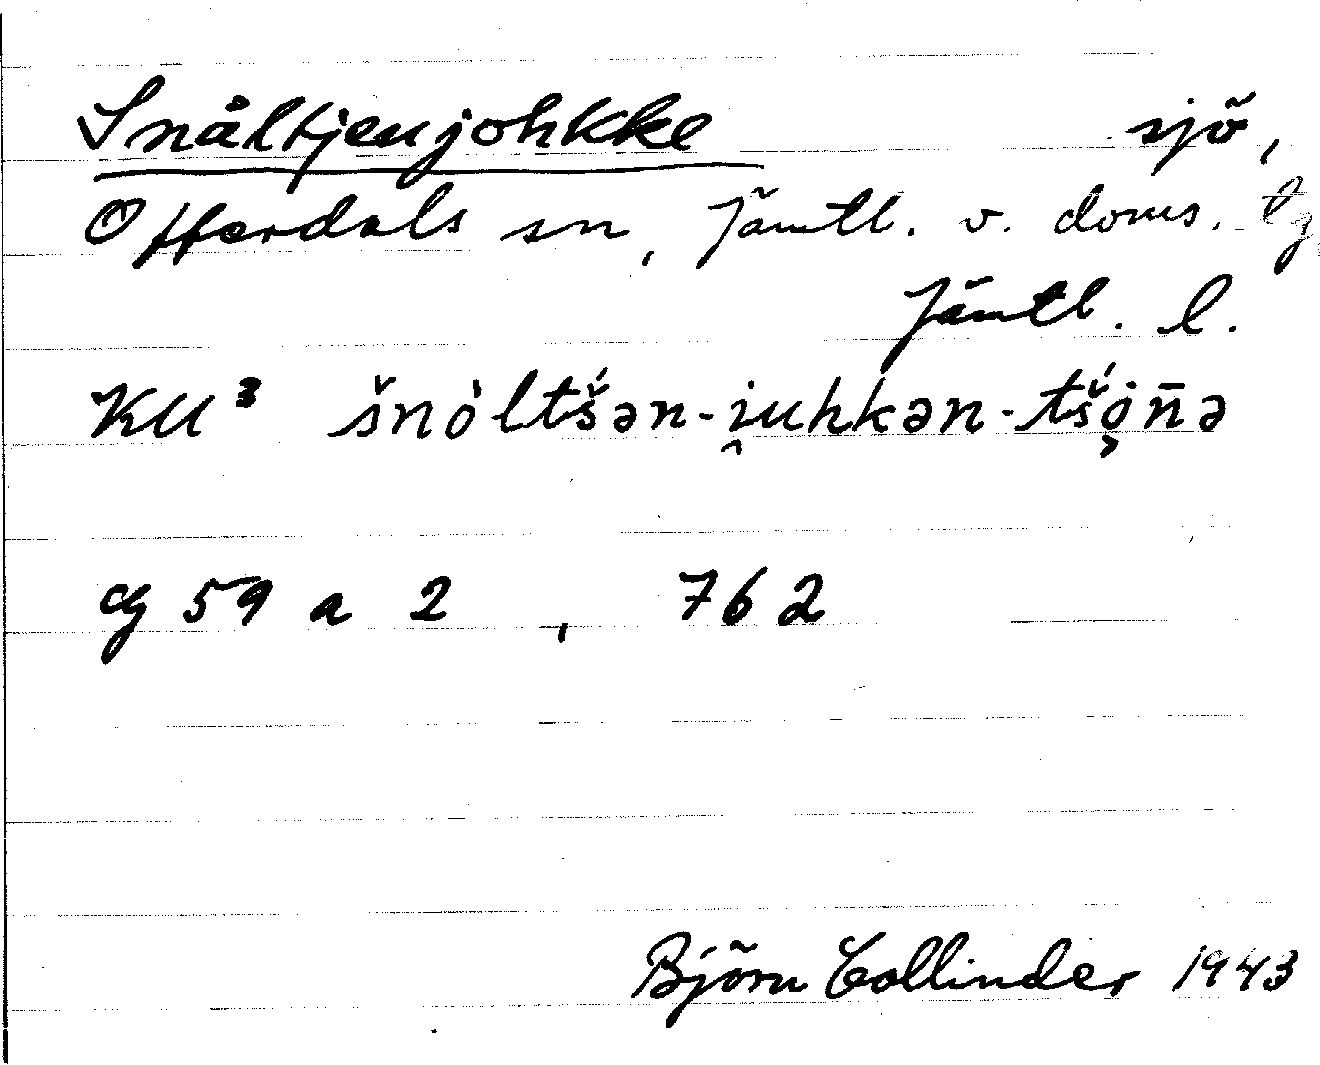 Snåltjenjohkke sjö,
Offerdals sn, Jämtl. v. doms. tg
Jämtl. l.
KU³ šnòltš́ən-i̯uhkən-tš́ǫ̇n̄ə
cg 59 a 2, 762
Björn Collinder 1943